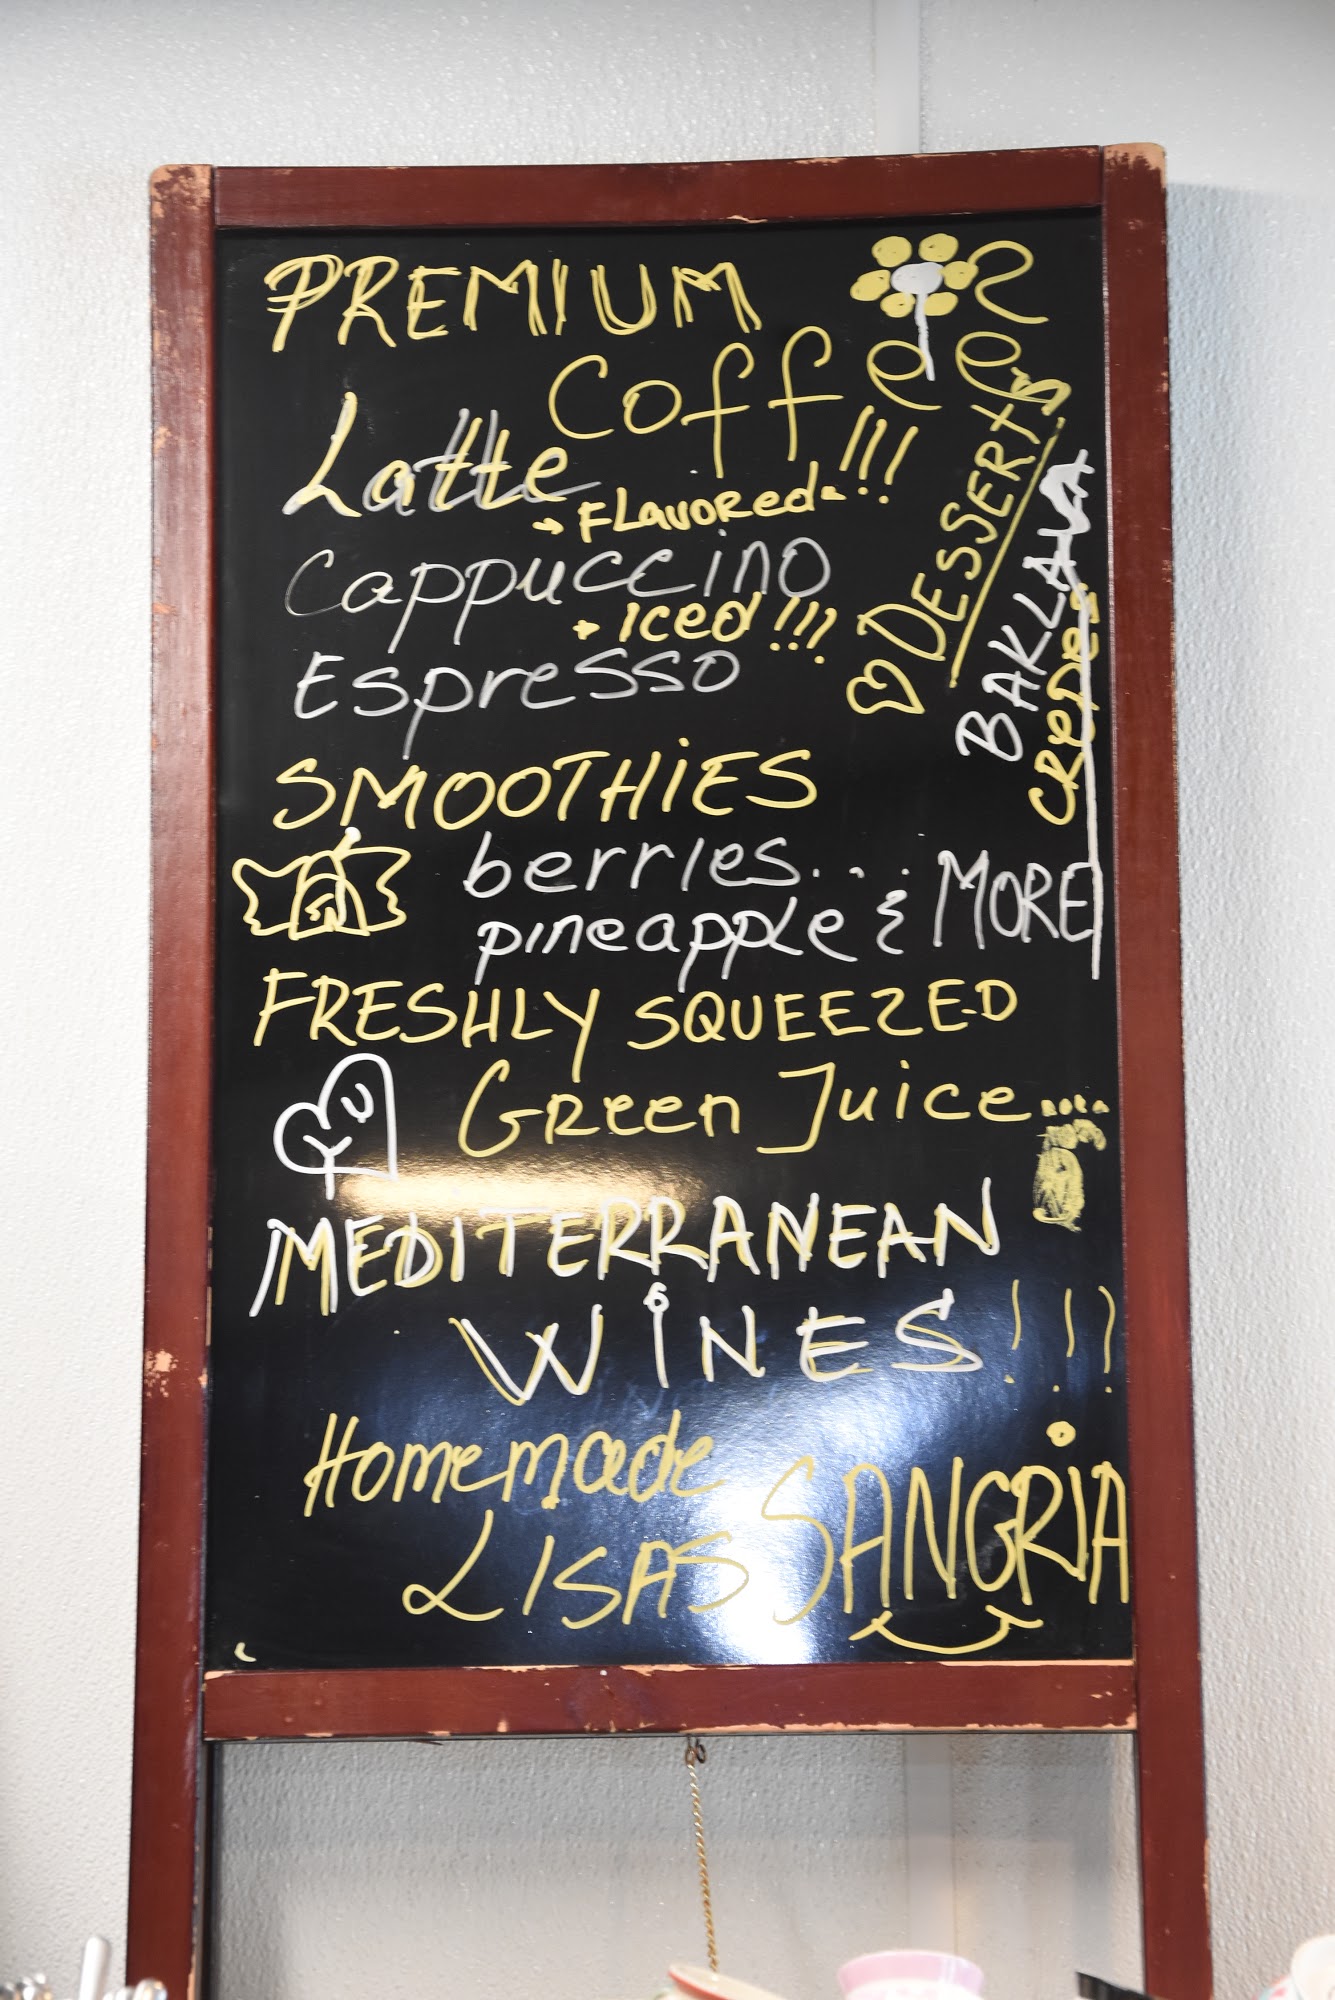 PREMIUM
Coffee
Latte
FLavored !!!
Cappuccino
Iced !!!
Espresso
DESSERTS
BAKLAVA
CREPES
SMOOTHiES
berries...
pineapple & MORE
FRESHLY SQUEEZED
GReen Juice...
MEDITERRANEAN
WiNES!!!
Homemade
LISAS SANGRiA